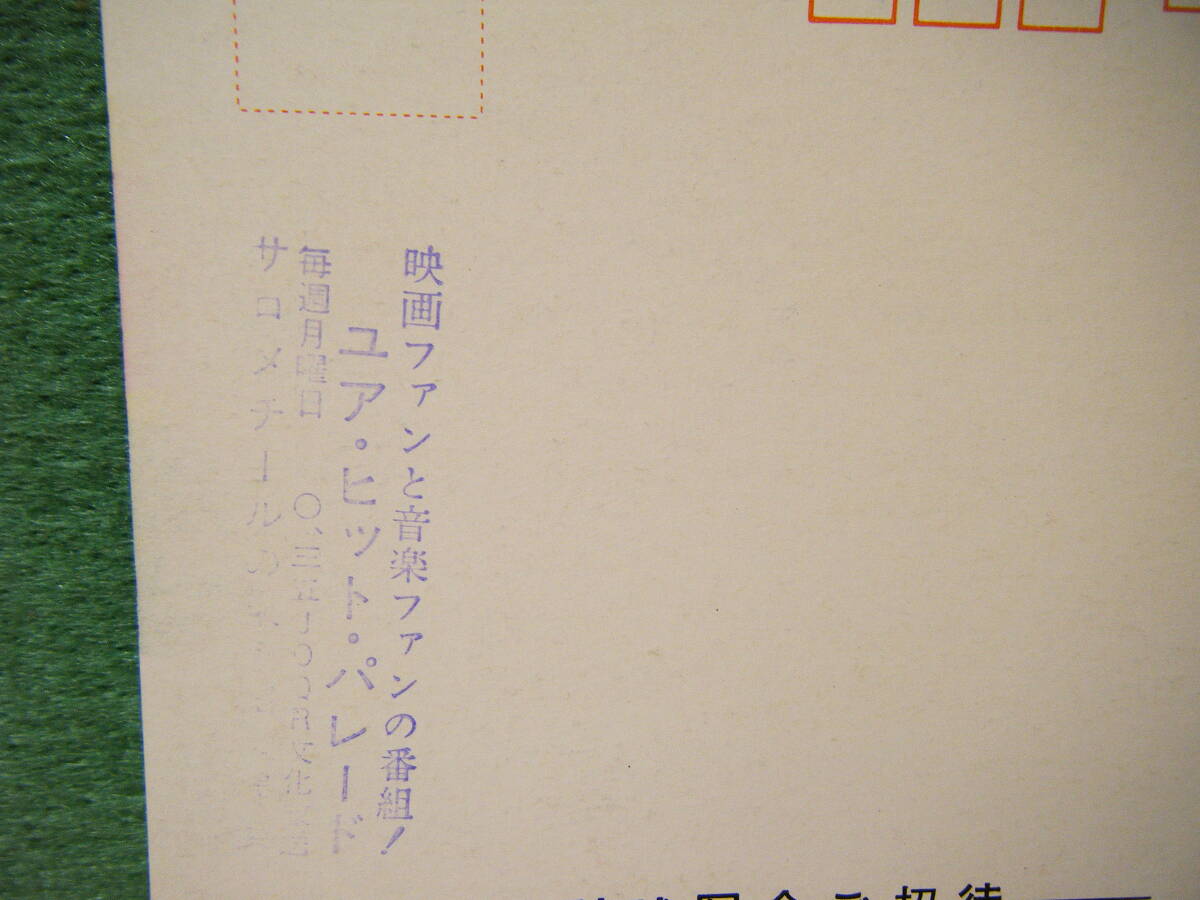 映画ファンと音楽ファンの番組！
ユア・ヒット・パレード
毎週月曜日 〇、三五 文化
サロメチールの
会ご招待